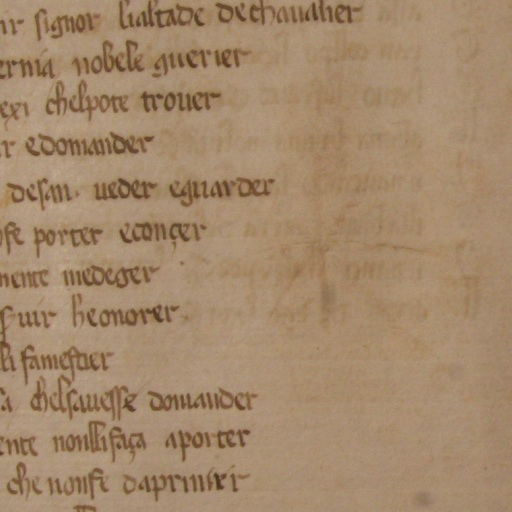 ir signor lialtade de chaualier
ernia nobele guerier
exi chelpote trouer
r edomander
desan· ueder eguarder
se porter econçer
mente medeger
ꝑuir heonorer
li famestier
sa chelsauesse domander
ente nonllifaça aporter
che nonse daprimer